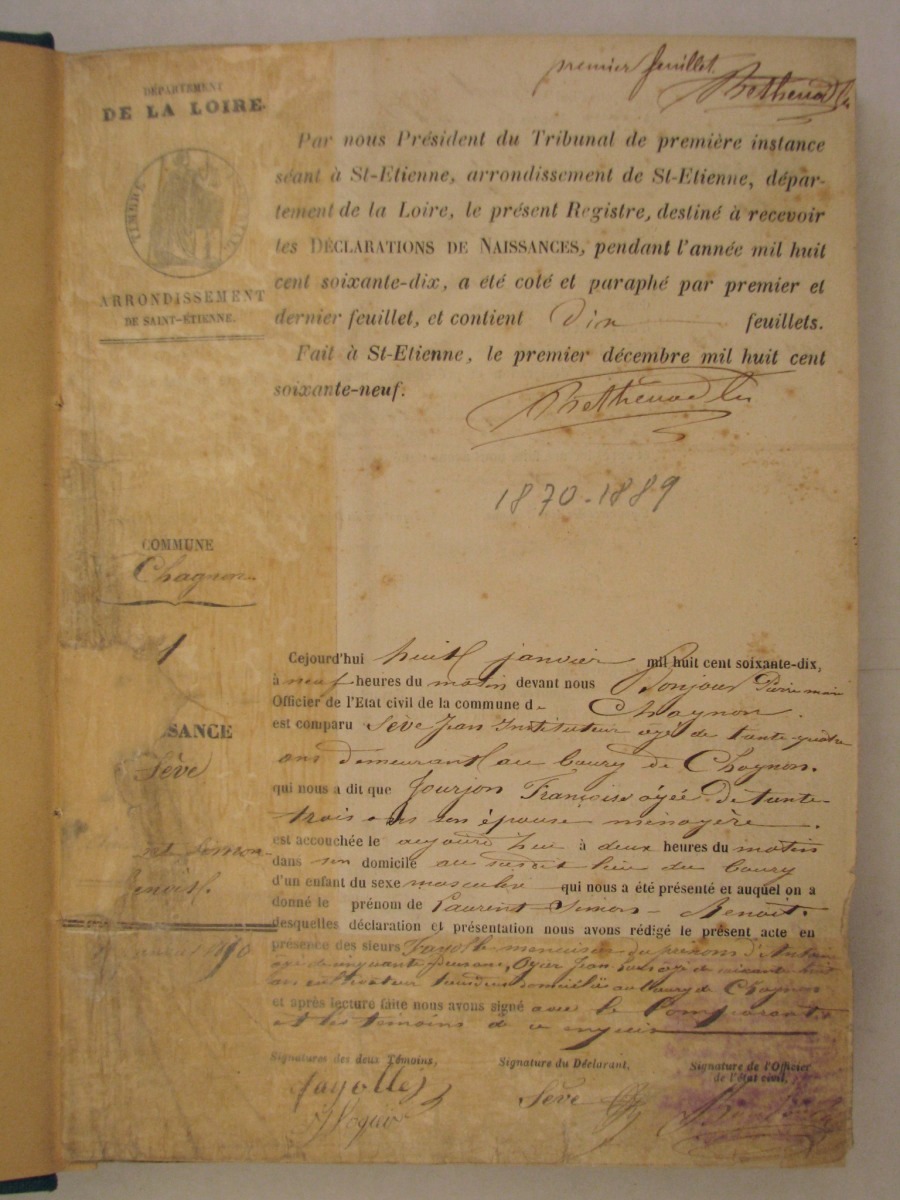 premier feuillet.
DÉPARTEMENT
DE LA LOIRE.
TIMBRE
ARRONDISSEMENT
DE SAINT-ÉTIENNE.
Par nous Président du Tribunal de première instance
séant à St-Etienne, arrondissement de St-Etienne, dépar-
tement de la Loire, le présent Registre, destiné à recevoir
les DÉCLARATIONS DE NAISSANCES, pendant l'année mil huit
cent soixante-dix, a été coté et paraphé par premier et
dernier feuillet, et contient Dix feuillets.
Fait à St-Etienne, le premier décembre mil huit cent
soixante-neuf.
1870-1889
COMMUNE
Chagnon
1
SSANCE
Sève
Simon
Benoist.
1870
Cejourd'hui huit janvier mil huit cent soixante-dix,
à neuf heures du matin devant nous Bonjour Pierre marie
Officier de l'Etat civil de la commune de Chagnon.
est comparu Sève Jean Instituteur agé de trente quatre
ans demeurant au bourg de Chagnon.
qui nous a dit que Jourjon Françoise âgée de trente-
trois ans son épouse ménagère.
est accouchée le aujourd'hui à deux heures du matin
dans son domicile au susdit lieu du bourg
d'un enfant du sexe masculin qui nous a été présenté et auquel on a
donné le prénom de Laurent Simon-Benoit.
desquelles déclaration et présentation nous avons rédigé le présent acte en
présence des sieurs Fayolle
agé de cinquante deux ans, Ogier Jean agé de soixante huit
ans cultivateur tous deux domiciliés au bourg de Chagnon
et après lecture faite nous avons signé avec le Comparant
et les témoins de ce enquis
Signatures des deux Témoins,
Signature du Déclarant.
Signature de l'Officier
de l'état civil,
Fayolle
Ogier
Sève